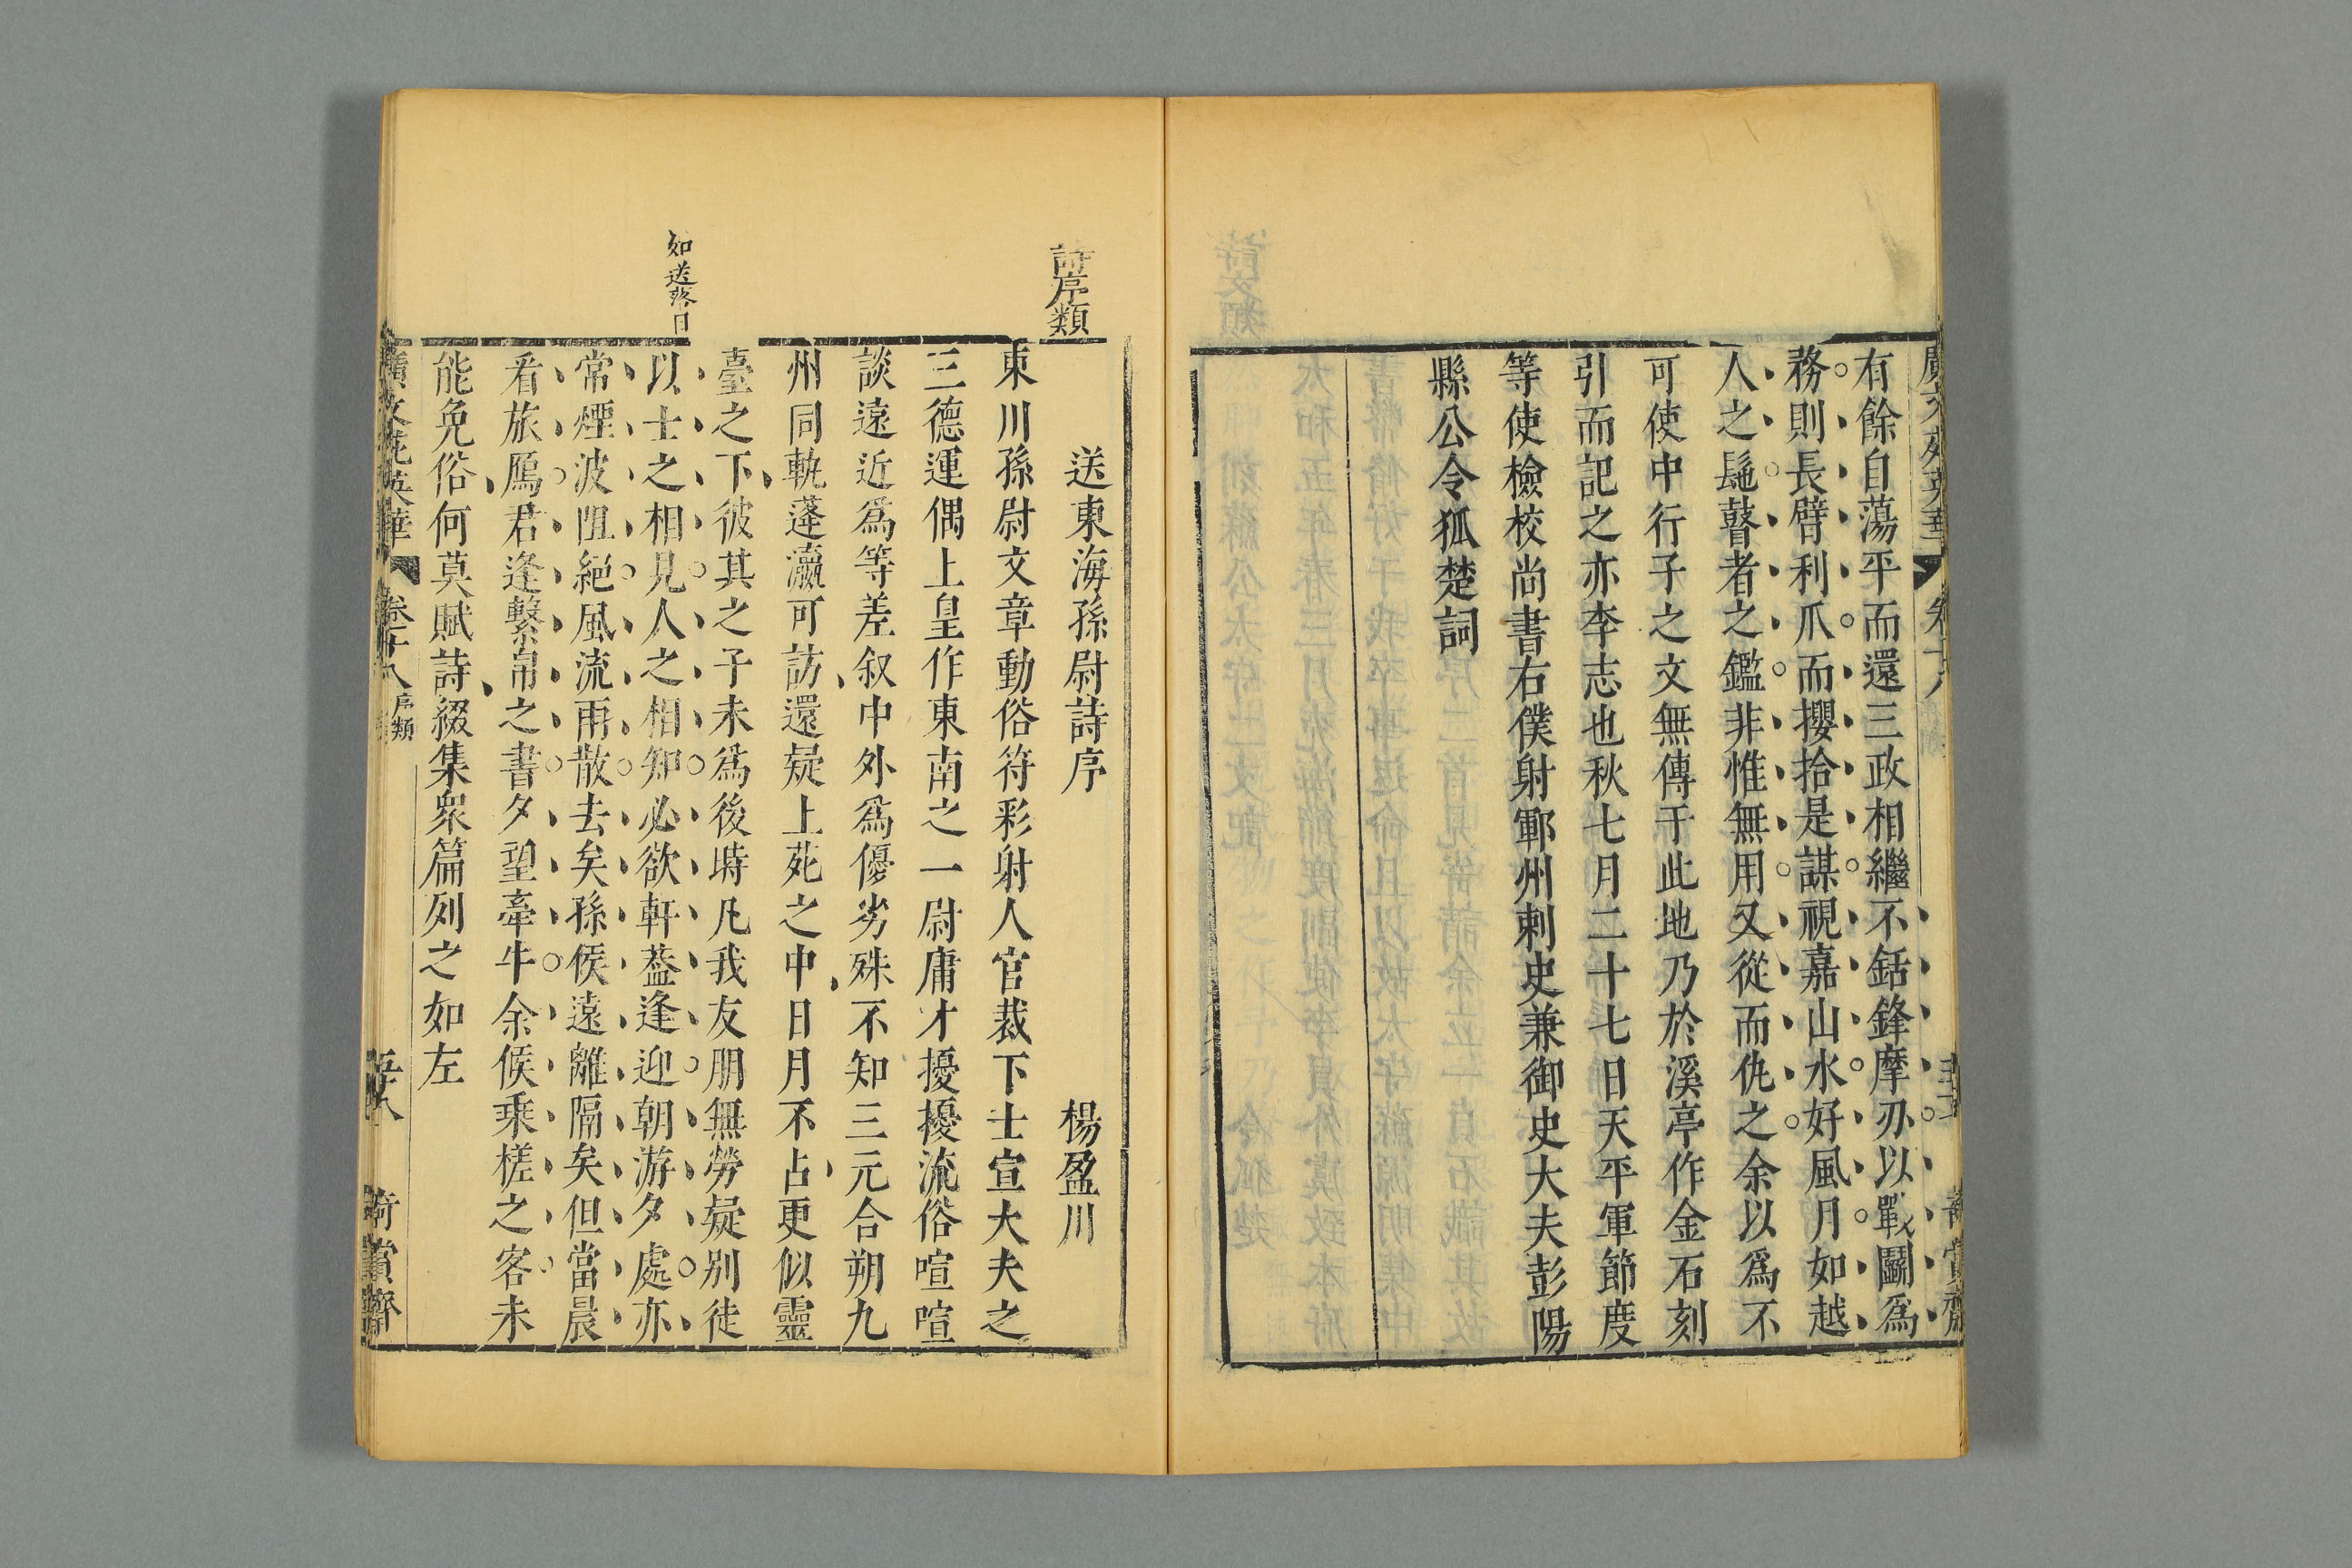 有餘自蕩平而還三政相繼不銛鋒摩刅以戰鬭爲
務則長臂利爪而攖拾是謀視嘉山水好風月如越
人之髢瞽者之鑑非惟無用又從而仇之余以爲不
可使中行子之文無傳于此地乃於溪亭作金石刻
引而記之亦李志也秋七月二十七日天平軍節度
等使檢校尚書右僕射鄆州刺史兼御史大夫彭陽
縣公令狐楚詞
詩序類
送東海孫尉詩序 楊盈川
東川孫尉文章動俗符彩射人官裁下士宣大夫之
三德運偶上皇作東南之一尉庸才擾擾流俗喧喧
談遠近爲等差叙中外爲優劣殊不知三元合朔九
州同軌蓬瀛可訪還疑上苑之中日月不占更似靈
臺之下彼其之子未爲後時凡我友朋無勞疑别徒
如送落日
以士之相見人之相知必欲軒葢逢迎朝游夕處亦
常煙波阻絕風流雨散去矣孫侯遠離隔矣但當晨
看旅鴈君逢繫帛之書夕望牽牛余候乘槎之客未
能免俗何莫賦詩綴集衆篇列之如左
廣文苑英華 卷十八 序類 奇賞齋